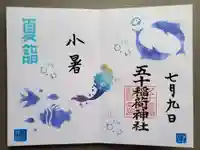 七月九日
五十稲荷神社
小暑
夏詣